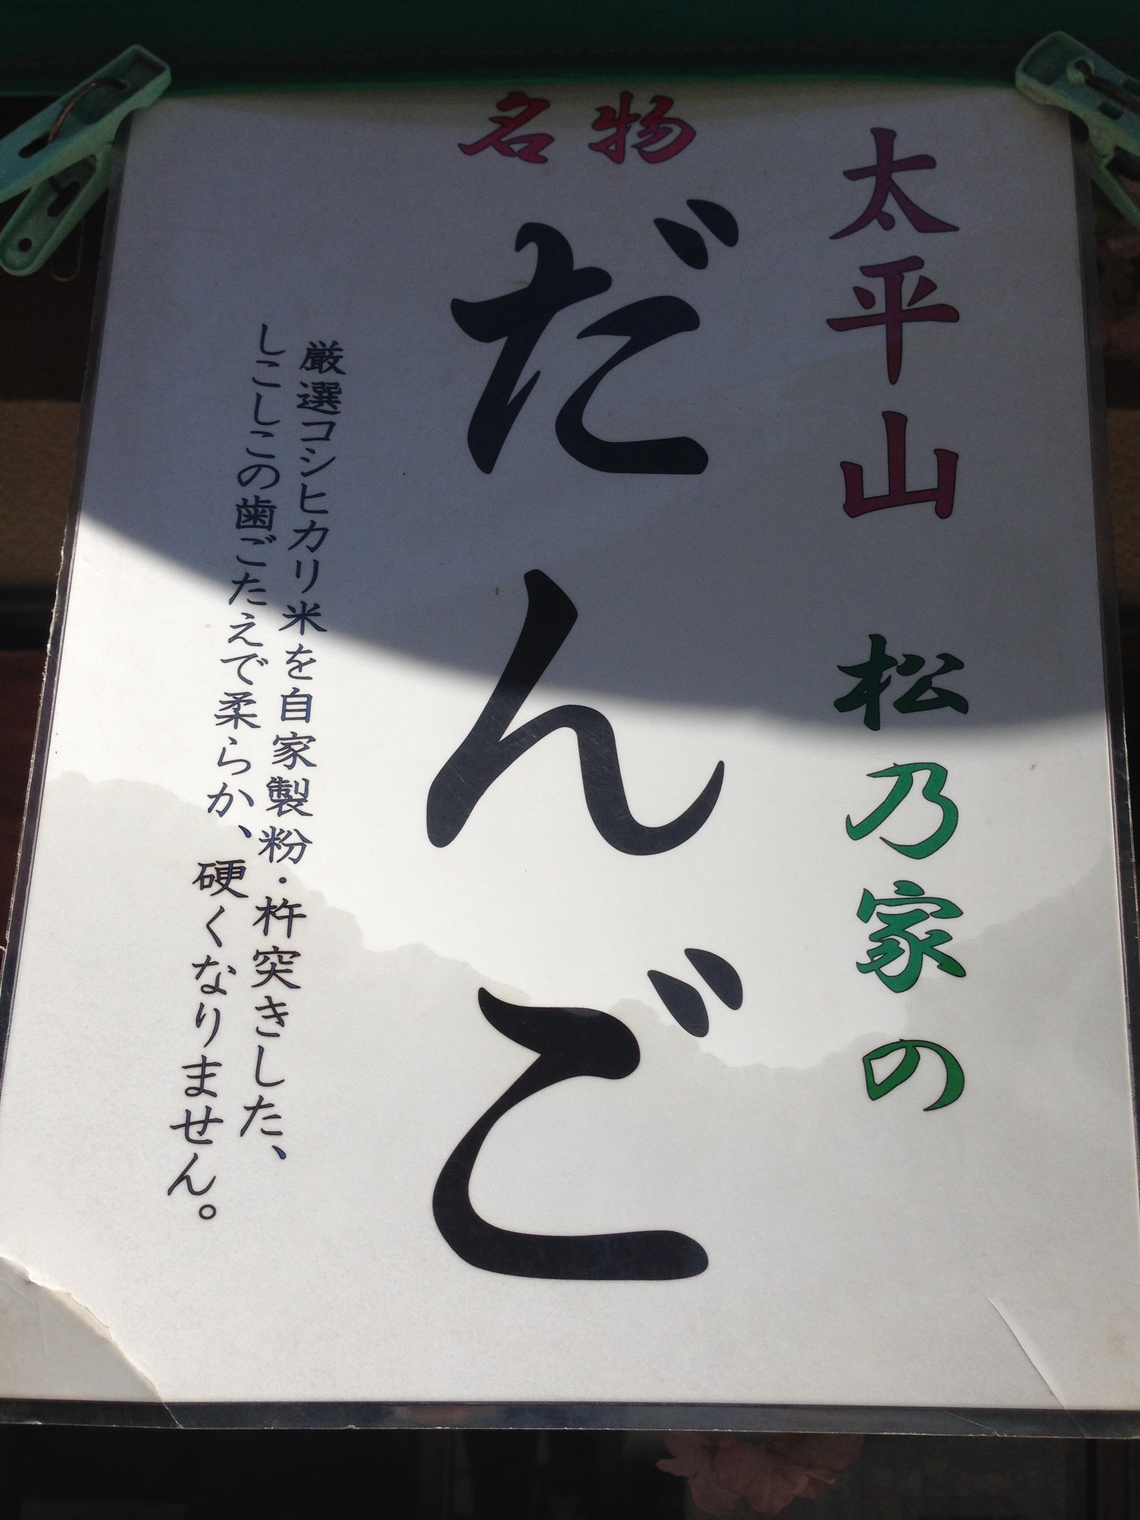 太平山 松乃家の
名物
だんご
厳選コシヒカリ米を自家製粉・杵突きした、
しこしこの歯ごたえで柔らか、硬くなりません。